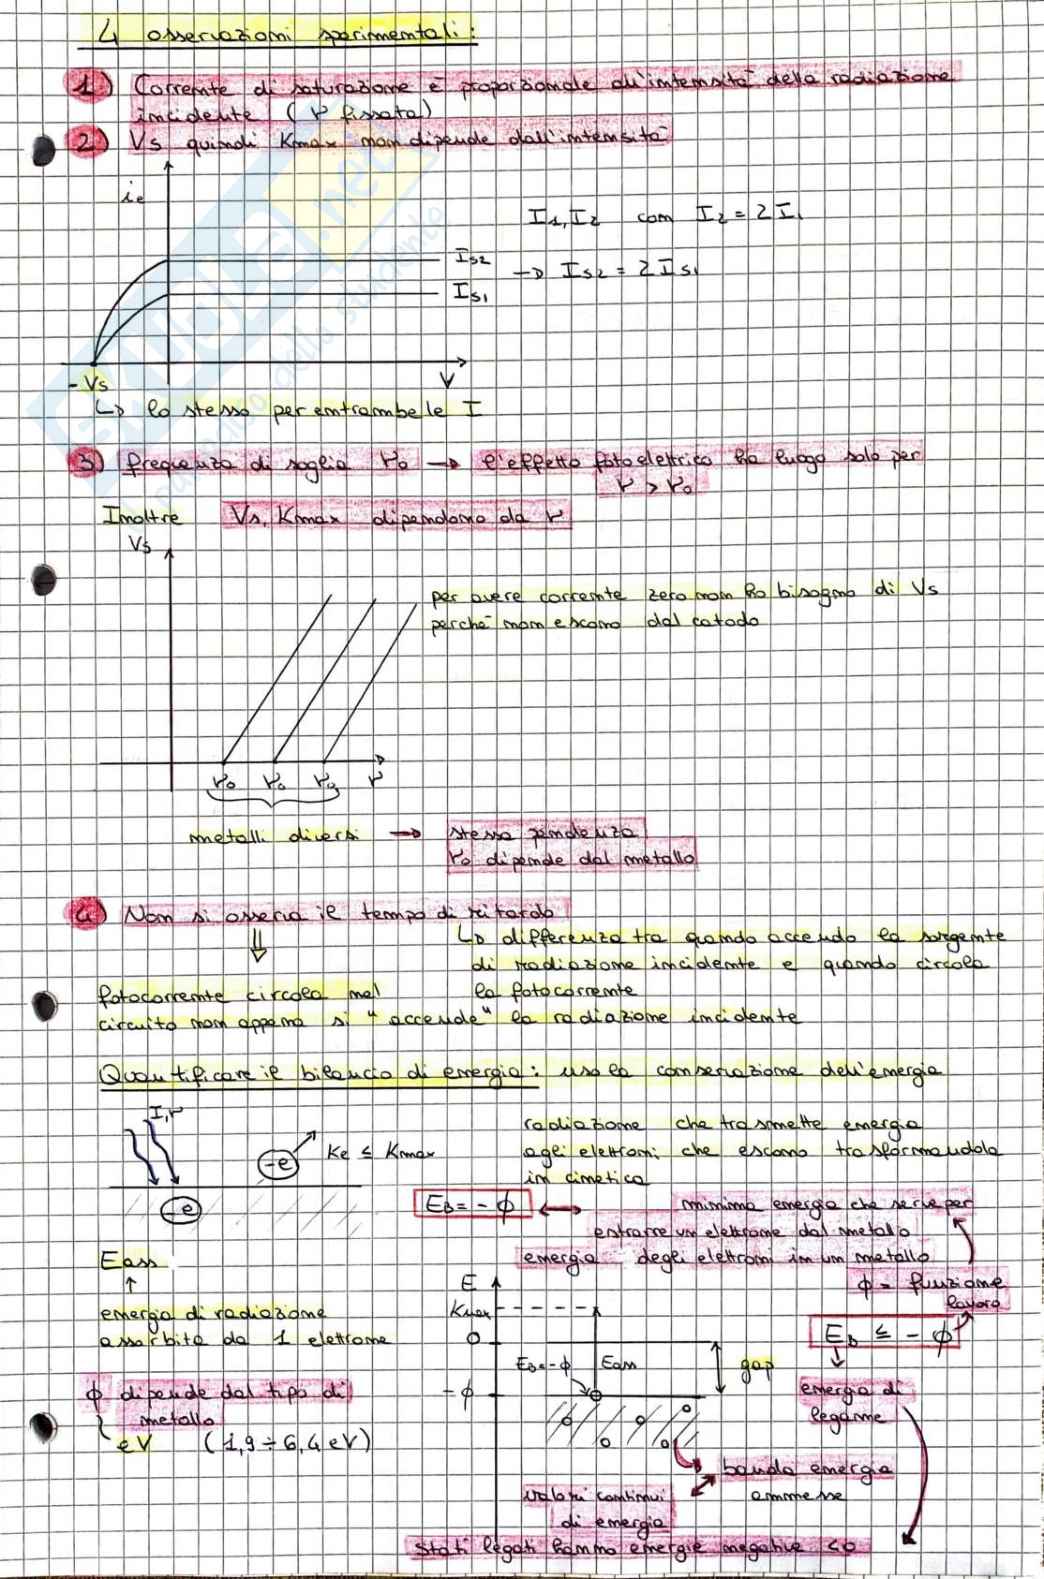 4 osservazioni sperimentali:
1) Corrente di saturazione è proporzionale all'intensità della radiazione
incidente (ν fissata)
2) Vs quindi Kmax non dipende dall'intensità
ie
I1, I2 con I2 = 2I1
Is2
→ Is2 = 2Is1
Is1
-Vs
V
↳ lo stesso per entrambe le I
3) frequenza di soglia ν0 → l'effetto fotoelettrico ha luogo solo per
ν > ν0
Inoltre Vs, Kmax dipendono da ν
Vs
per avere corrente zero non ho bisogno di Vs
perché non escono dal catodo
ν0 ν0 ν0 ν
metalli diversi → stessa pendenza
ν0 dipende dal metallo
4) Non si osserva il tempo di ritardo
⇓
↳ differenza tra quando accendo la sorgente
di radiazione incidente e quando circola
la fotocorrente
fotocorrente circola nel
circuito non appena si "accende" la radiazione incidente
Quantificare il bilancio di energia: uso la conservazione dell'energia
I, ν
-e
Ke ≤ Kmax
-e
radiazione che trasmette energia
agli elettroni che escono trasformandola
in cinetica
EB = -ϕ ↔ minima energia che serve per
estrarre un elettrone dal metallo
energia degli elettroni in un metallo
ϕ = funzione
lavoro
Eass
↑
energia di radiazione
assorbita da 1 elettrone
E
Kmax
0
EB=-ϕ
Eass
gap
-ϕ
EB ≤ -ϕ
energia di
legame
ϕ dipende dal tipo di
metallo
eV (1,9 ÷ 6,4 eV)
banda energia
ammesse
valori continui
di energia
stati legati hanno energie negative <0